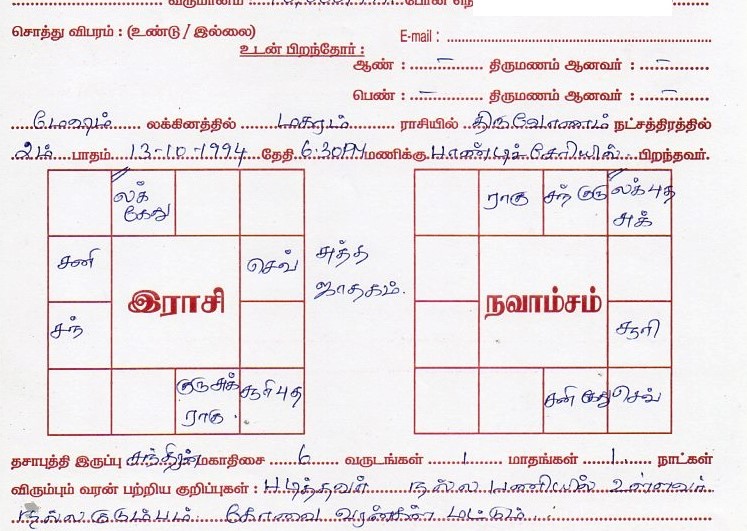 வருமானம் : போன் நெ
சொத்து விபரம் : (உண்டு / இல்லை)
E-mail :
உடன் பிறந்தோர் :
ஆண் : – திருமணம் ஆனவர் : –
பெண் : – திருமணம் ஆனவர் : –
மேஷம் லக்கினத்தில் மகரம் ராசியில் திருவோணம் நட்சத்திரத்தில்
2ம் பாதம் 13-10-1994 தேதி 6:30PM மணிக்கு பாண்டிச்சேரியில் பிறந்தவர்.
லக் கேது
ராகு சந் குரு லக் புத சுக்
சனி செவ்
சுத்த ஜாதகம்.
இராசி
நவாம்சம்
சந்
சூரி
குரு சுக் ராகு சூரி புத
சனி கேது செவ்
தசாபுத்தி இருப்பு சந்திரன் மகாதிசை 6 வருடங்கள் 1 மாதங்கள் 1 நாட்கள்
விரும்பும் வரன் பற்றிய குறிப்புகள் : படித்தவர் நல்ல பணியில் உள்ளவர்
நல்ல குடும்பம் கோவை வரன்கள் மட்டும்